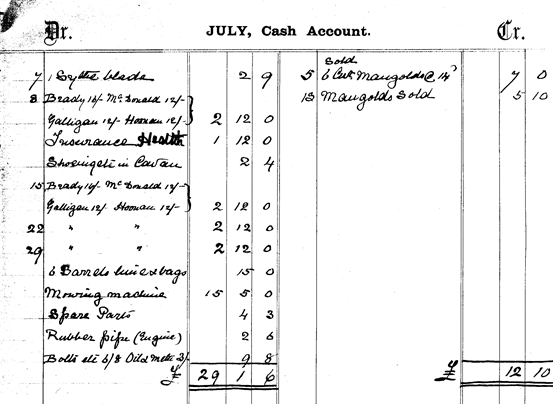 Dr. JULY, Cash Account. Cr.
7 1 Scythe blade 2 9
8 Brady 16/- McDonald 12/-
Galligan 12/- Hoonan 12/- 2 12 0
Insurance Health 1 12 0
Shoeing etc in Cavan 2 4
15 Brady 16/- McDonald 12/-
Galligan 12/- Hoonan 12/- 2 12 0
22 " " 2 12 0
29 " " 2 12 0
6 Barrels lime & bags 15 0
Mowing machine 15 5 0
Spare Parts 4 3
Rubber pipe (Engine) 2 6
Bolts etc 6/8 Oild 3/- 9 8
£ 29 1 6
Sold
5 6 Cwt Mangolds @ 14 7 0
13 Mangolds Sold 5 10
£ 12 10